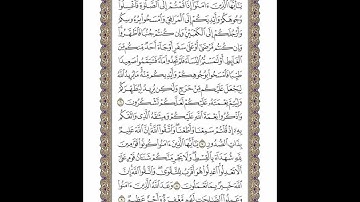 يَٰٓأَيُّهَا ٱلَّذِينَ ءَامَنُوٓاْ إِذَا قُمۡتُمۡ إِلَى ٱلصَّلَوٰةِ فَٱغۡسِلُواْ
وُجُوهَكُمۡ وَأَيۡدِيَكُمۡ إِلَى ٱلۡمَرَافِقِ وَٱمۡسَحُواْ بِرُءُوسِكُمۡ
وَأَرۡجُلَكُمۡ إِلَى ٱلۡكَعۡبَيۡنِۚ وَإِن كُنتُمۡ جُنُبٗا فَٱطَّهَّرُواْۚ
وَإِن كُنتُم مَّرۡضَىٰٓ أَوۡ عَلَىٰ سَفَرٍ أَوۡ جَآءَ أَحَدٞ مِّنكُم مِّنَ
ٱلۡغَآئِطِ أَوۡ لَٰمَسۡتُمُ ٱلنِّسَآءَ فَلَمۡ تَجِدُواْ مَآءٗ فَتَيَمَّمُواْ صَعِيدٗا
طَيِّبٗا فَٱمۡسَحُواْ بِوُجُوهِكُمۡ وَأَيۡدِيكُم مِّنۡهُۚ مَا يُرِيدُ ٱللَّهُ
لِيَجۡعَلَ عَلَيۡكُم مِّنۡ حَرَجٖ وَلَٰكِن يُرِيدُ لِيُطَهِّرَكُمۡ
وَلِيُتِمَّ نِعۡمَتَهُۥ عَلَيۡكُمۡ لَعَلَّكُمۡ تَشۡكُرُونَ ٦
وَٱذۡكُرُواْ نِعۡمَةَ ٱللَّهِ عَلَيۡكُمۡ وَمِيثَٰقَهُ ٱلَّذِي وَاثَقَكُم
بِهِۦٓ إِذۡ قُلۡتُمۡ سَمِعۡنَا وَأَطَعۡنَاۖ وَٱتَّقُواْ ٱللَّهَۚ إِنَّ ٱللَّهَ عَلِيمُۢ
بِذَاتِ ٱلصُّدُورِ ٧ يَٰٓأَيُّهَا ٱلَّذِينَ ءَامَنُواْ كُونُواْ قَوَّٰمِينَ
لِلَّهِ شُهَدَآءَ بِٱلۡقِسۡطِۖ وَلَا يَجۡرِمَنَّكُمۡ شَنَـَٔانُ قَوۡمٍ عَلَىٰٓ
أَلَّا تَعۡدِلُواْۚ ٱعۡدِلُواْ هُوَ أَقۡرَبُ لِلتَّقۡوَىٰۖ وَٱتَّقُواْ ٱللَّهَۚ إِنَّ
ٱللَّهَ خَبِيرُۢ بِمَا تَعۡمَلُونَ ٨ وَعَدَ ٱللَّهُ ٱلَّذِينَ ءَامَنُواْ
وَعَمِلُواْ ٱلصَّٰلِحَٰتِ لَهُم مَّغۡفِرَةٞ وَأَجۡرٌ عَظِيمٞ ٩